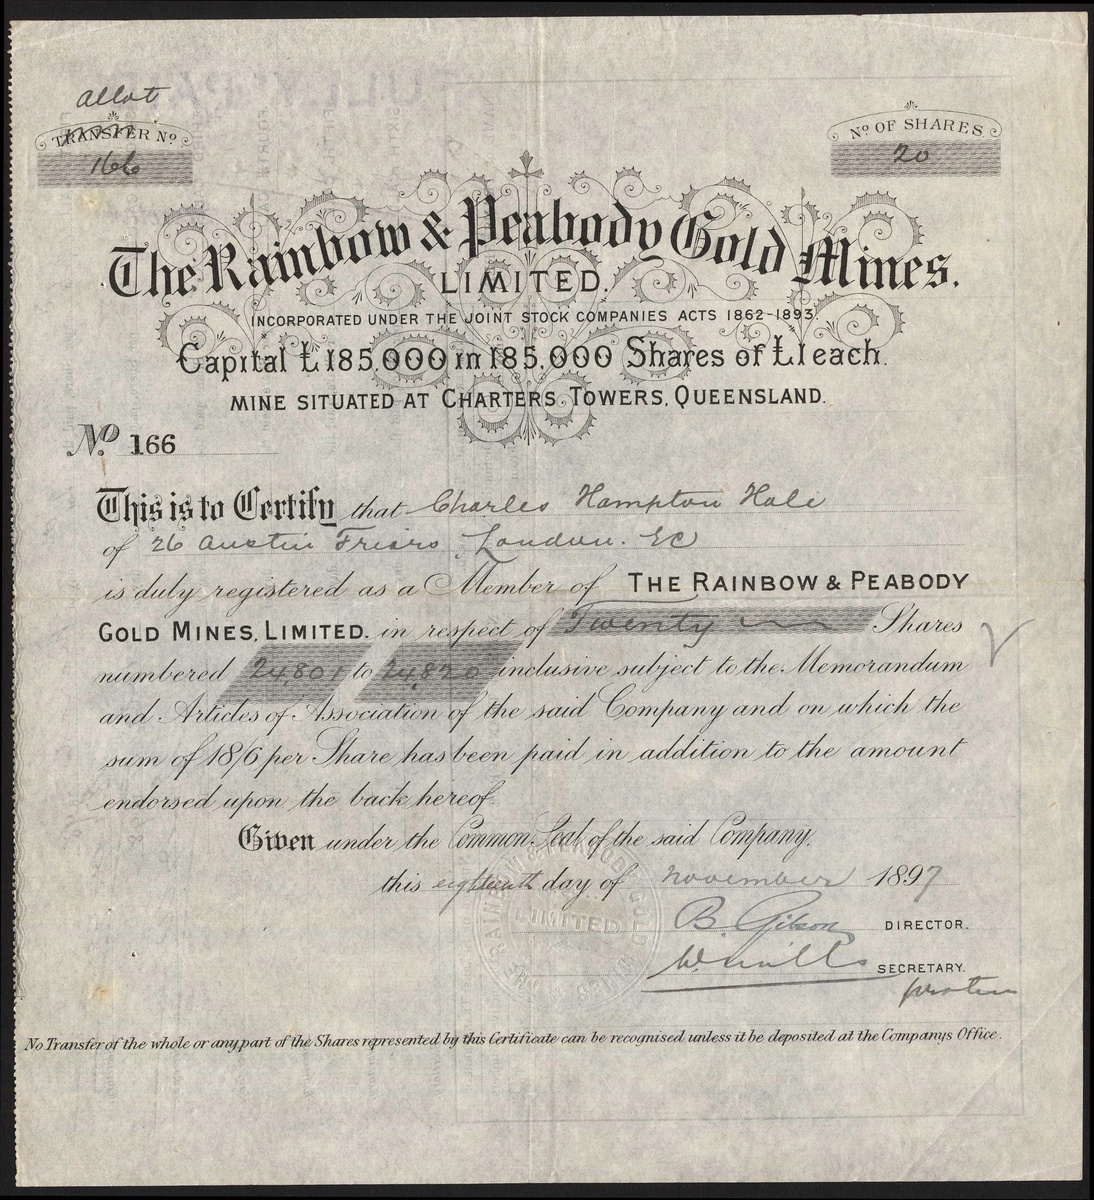 allot
TRANSFER No.
166
No. OF SHARES.
20
The Rainbow & Peabody Gold Mines.
LIMITED.
INCORPORATED UNDER THE JOINT STOCK COMPANIES ACTS 1862-1893.
Capital £185.000 in 185,000 Shares of £1 each.
MINE SITUATED AT CHARTERS TOWERS, QUEENSLAND.
No. 166
This is to Certify that Charles Hampton Hale
of 26 Austin Friars, London. EC
is duly registered as a Member of THE RAINBOW & PEABODY
GOLD MINES, LIMITED. in respect of Twenty Shares
numbered 24,801 to 24,820 inclusive subject to the Memorandum
and Articles of Association of the said Company and on which the
sum of 18/6 per Share has been paid in addition to the amount
endorsed upon the back hereof.
Given under the Common Seal of the said Company.
this eighteenth day of November 1897
B. Gibson DIRECTOR.
SECRETARY.
pro tem
No Transfer of the whole or any part of the Shares represented by this Certificate can be recognised unless it be deposited at the Companys Office.